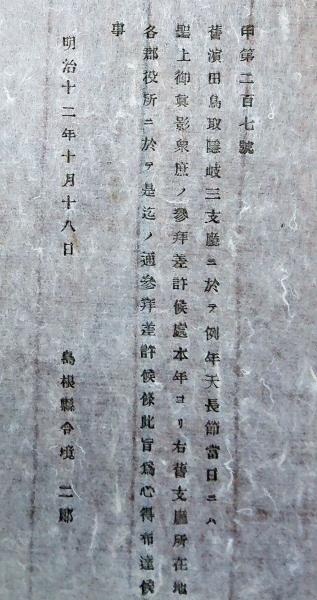 甲第二百七號
舊濱田鳥取隱岐三支廳ニ於テ例年天長節當日ニハ
聖上御眞影衆庶ノ參拜差許候處本年ヨリ右舊支廳所在地
各郡役所ニ於テ是迄ノ通參拜差許候條此旨爲心得布達候
事
明治十二年十月十八日
島根縣令境二郎